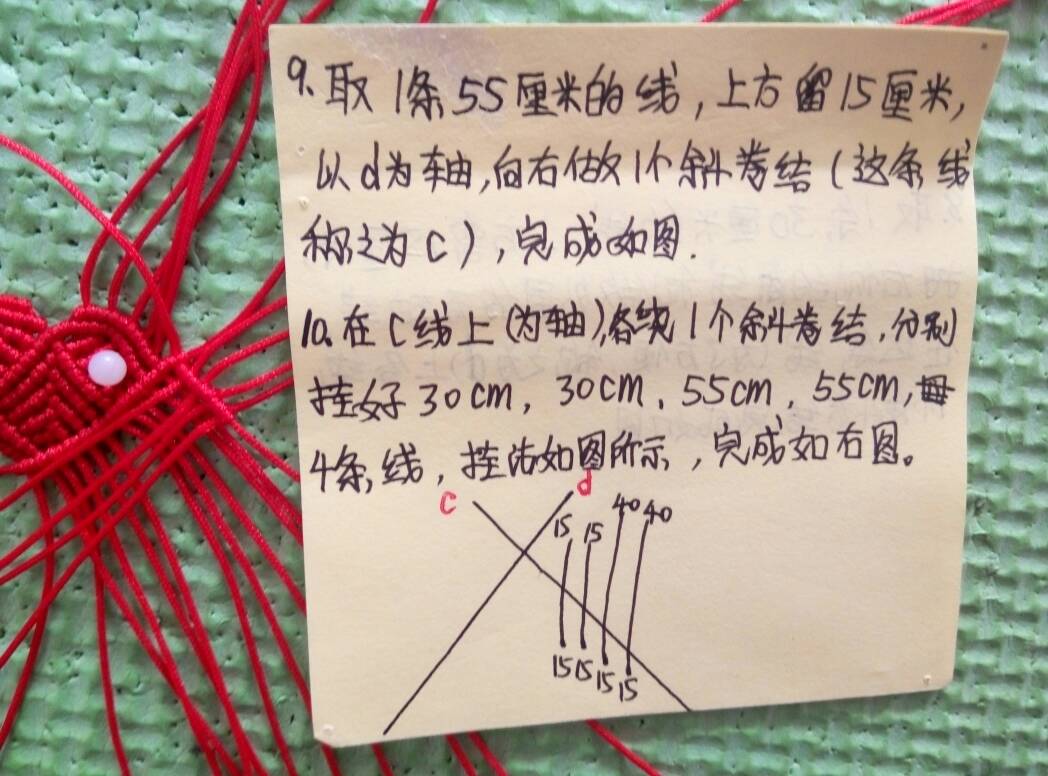 9.取1条55厘米的线,上方留15厘米,
以d为轴,向右做1个斜卷结(这条线
称之为C),完成如图.
10.在C线上(为轴),各绕1个斜卷结,分别
挂好30cm,30cm、55cm、55cm,每
4条线,挂法如图所示,完成如右图。
c d
15 15 40 40
15 15 15 15